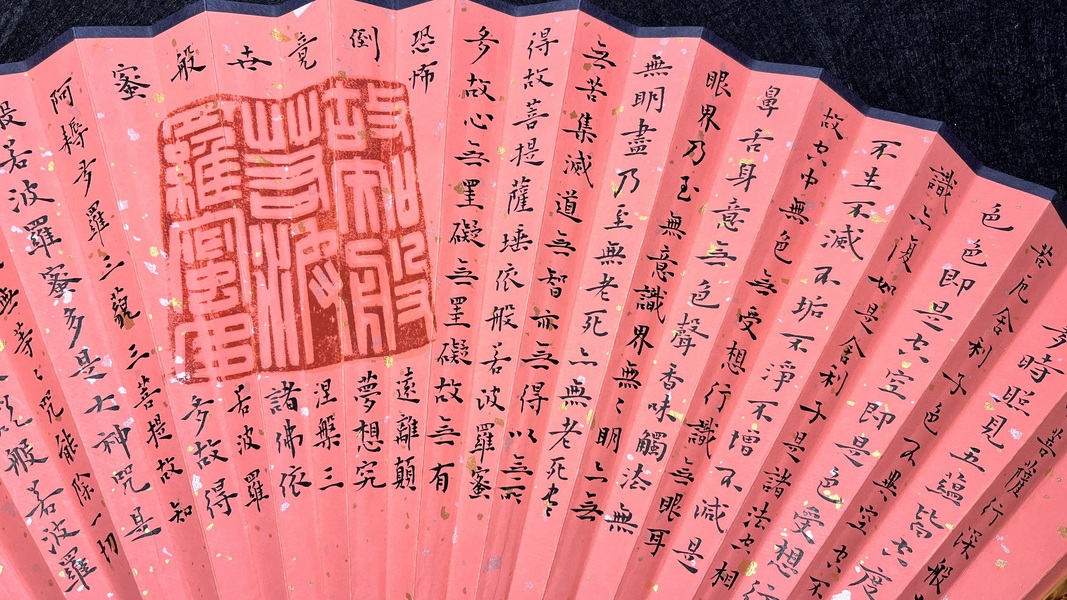 菩薩行深般
多時照見五蘊皆空度
苦厄舍利子色不異空空不
色色即是空空即是色受想行
識亦復如是舍利子是諸法空相
不生不滅不垢不淨不增不減是
故空中無色無受想行識無眼耳
鼻舌身意无色聲香味觸法無
眼界乃至無意識界無〻明亦无
無明盡乃至無老死亦無老死盡
无苦集滅道无智亦无得以无所
得故菩提薩埵依般若波羅蜜
多故心无罣礙无罣礙故无有
恐怖遠離顛
倒夢想究
竟涅槃三
世諸佛依
般若波羅
蜜多故得
阿耨多羅三藐三菩提故知
般若波羅蜜多是大神咒是
無等〻咒能除一切
說般若波羅